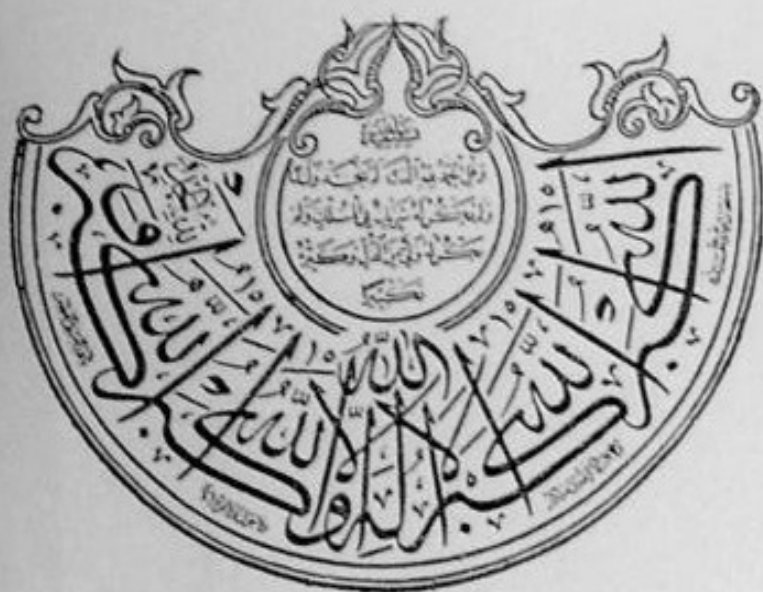 وقل الحمد لله الذي لم يتخذ ولدا
ولم يكن له شريك في الملك ولم
يكن له ولي من الذل وكبره
تكبيرا
الله أكبر الله أكبر لا إله إلا الله والله أكبر الله أكبر ولله الحمد